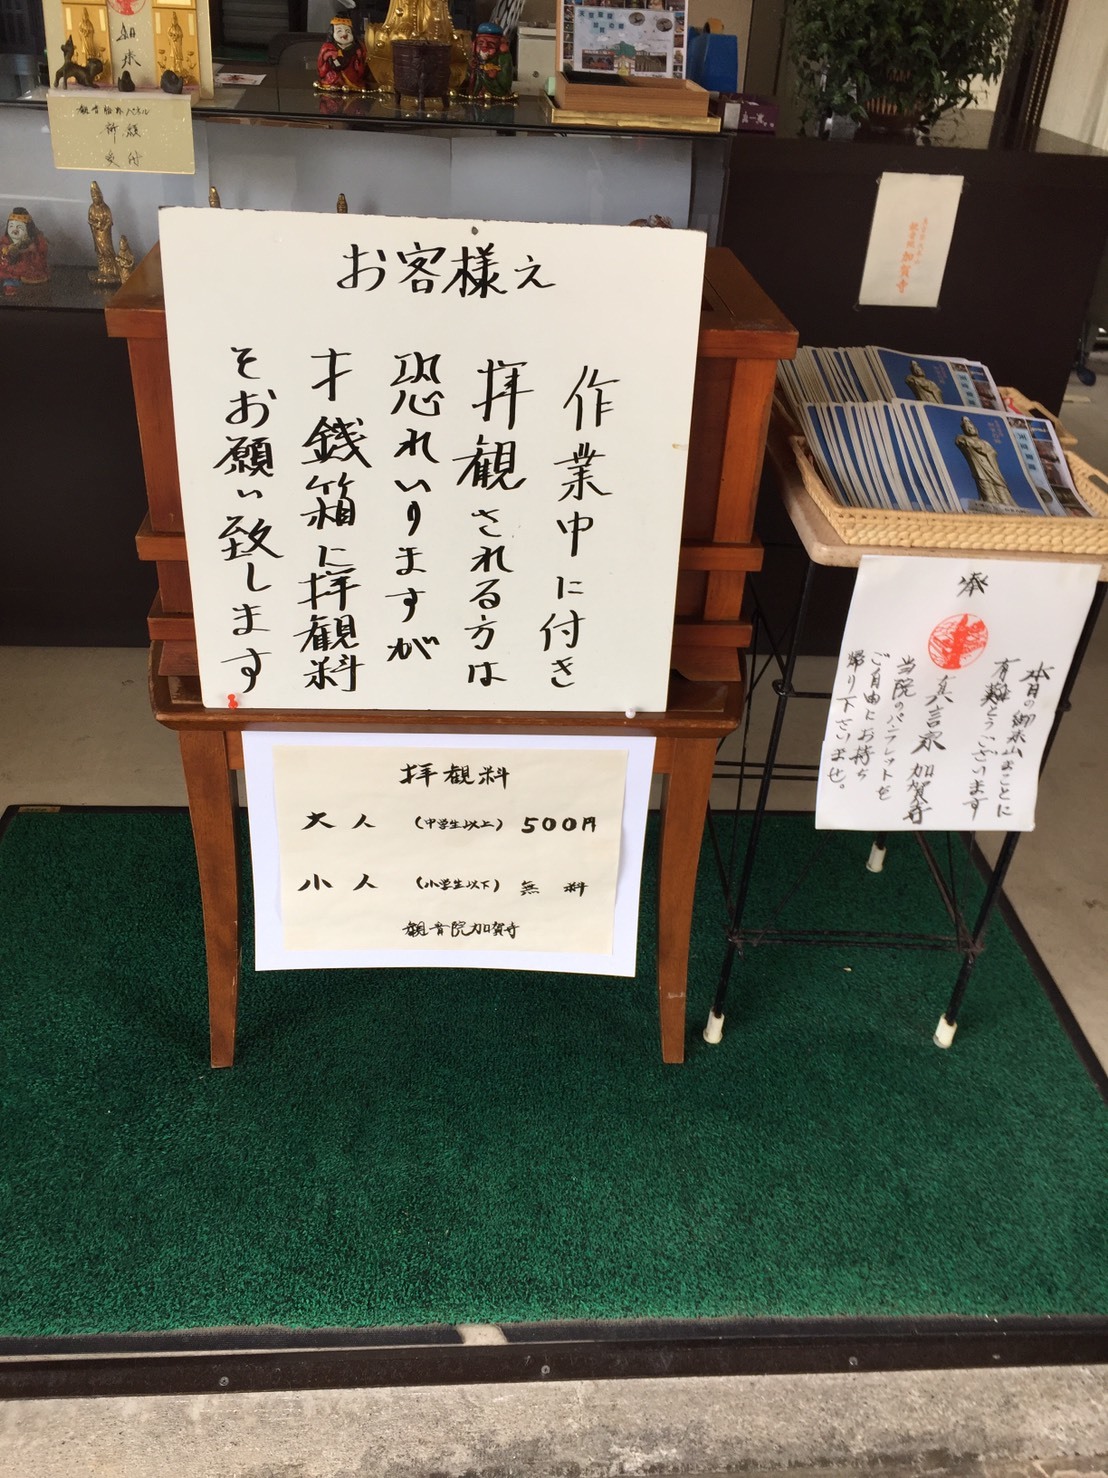 お客様え
作業中に付き
拝観される方は
恐れいりますが
才銭箱に拝観料
そお願い致します
拝観料
大人 (中学生以上) 500円
小人 (小学生以下) 無料
観音院加賀寺
奉
本日の御来山まことに
有難とうございます
真言宗 加賀寺
当院のパンフレットを
ご自由にお持ち
帰り下さいませ。
祈願
受付
加賀寺